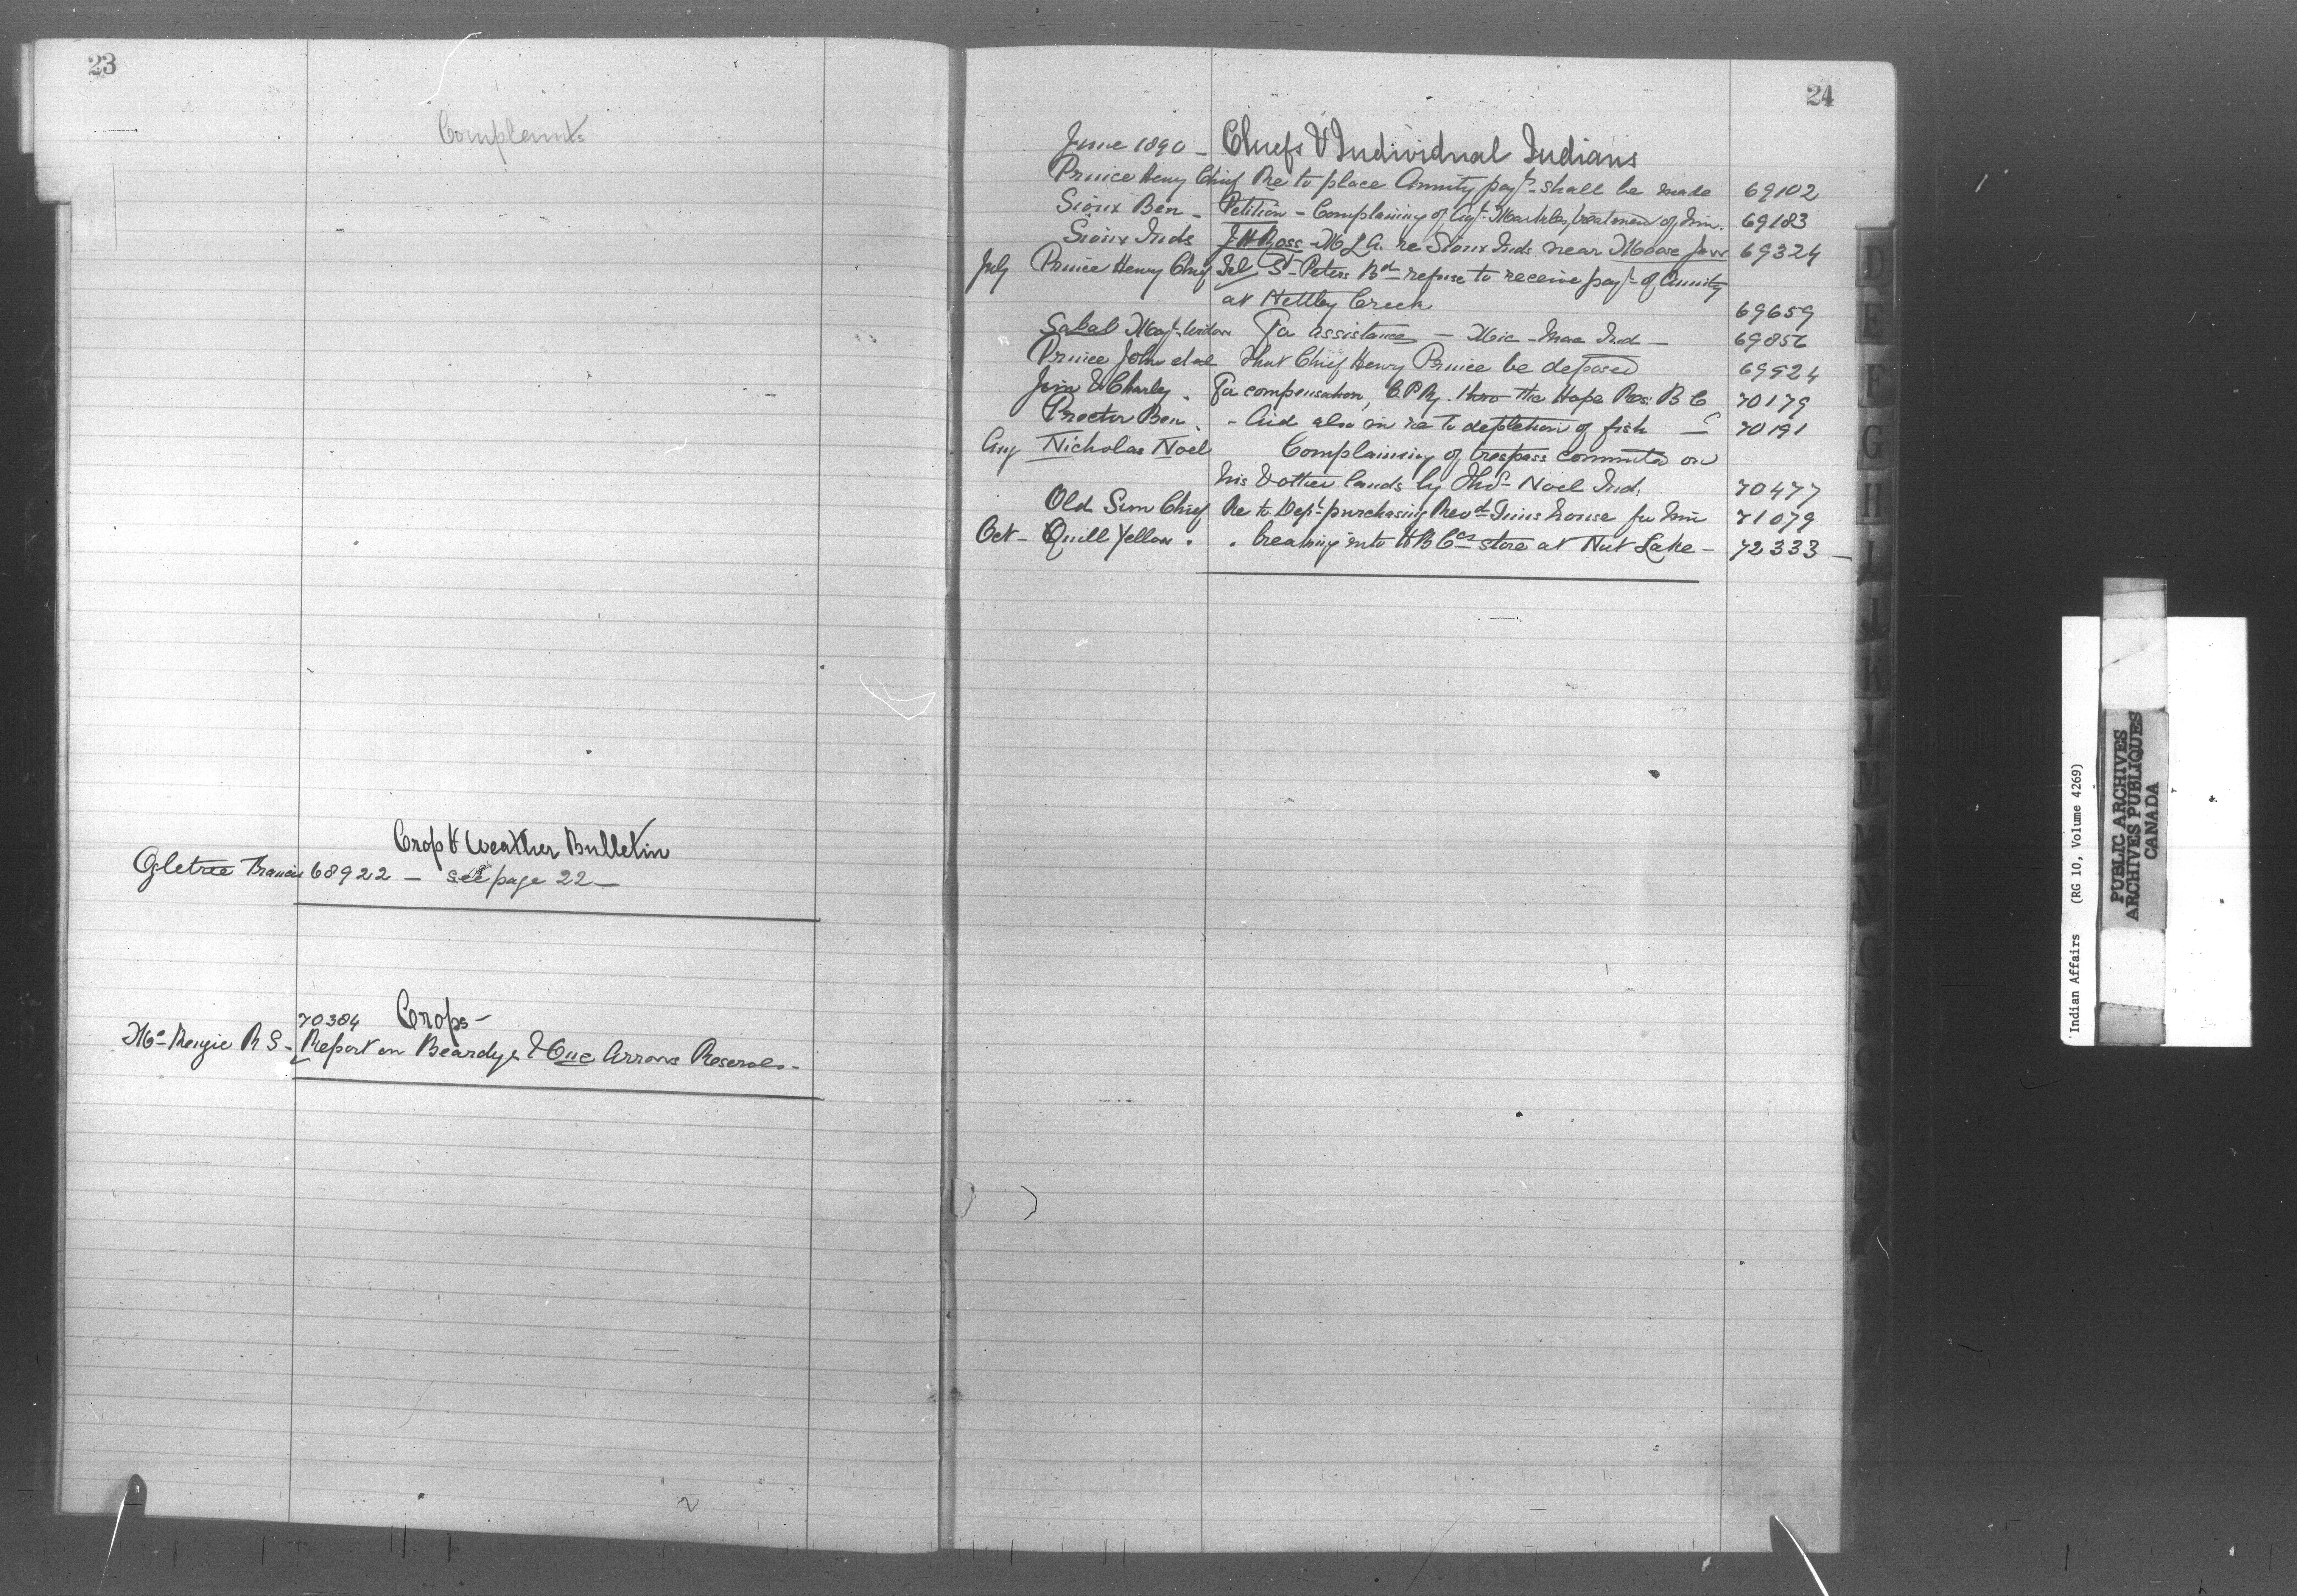 23
Complaints
Crop & Weather Bulletin
Ogletree Francis 68922 — see page 22 —
70384 Crops —
McKenzie R S - Report on Beardys & One Arrows Reserves -
24
June 1890 - Chiefs & Individual Indians
Prince Henry Chief Re to place Annuity payt shall be made 69102
Sioux Ben - Petition - Complaining of Agt Markles treatment of him. 69183
Sioux Inds J H Ross - M L A. re Sioux Inds near Moose Jaw 69324
July Prince Henry Chief Tel St Peters Bd refuse to receive payt of Annuity
at Nettley Creek 69659
Sabal Mayt Widow For assistance — Mic-mac Ind — 69856
Prince John et al That Chief Henry Prince be deposed 69924
Jim & Charley . For compensation, C P Ry. thro the Hope Res: B C 70179
Proctor Ben . - Aid also in re to depletion of fish — 70191
Aug Nicholas Noel Complaining of trespass committed on
his & other lands by Thos Noel Ind. 70477
Old Sim Chief Re to Dept purchasing Revd house for him 71079
Oct - Quill Yellow . . breaking into H B Cos store at Nut Lake - 72333 —
D
E
F
G
H
I
J
K
L
M
Indian Affairs (RG 10, Volume 4269)
PUBLIC ARCHIVES
ARCHIVES PUBLIQUES
CANADA